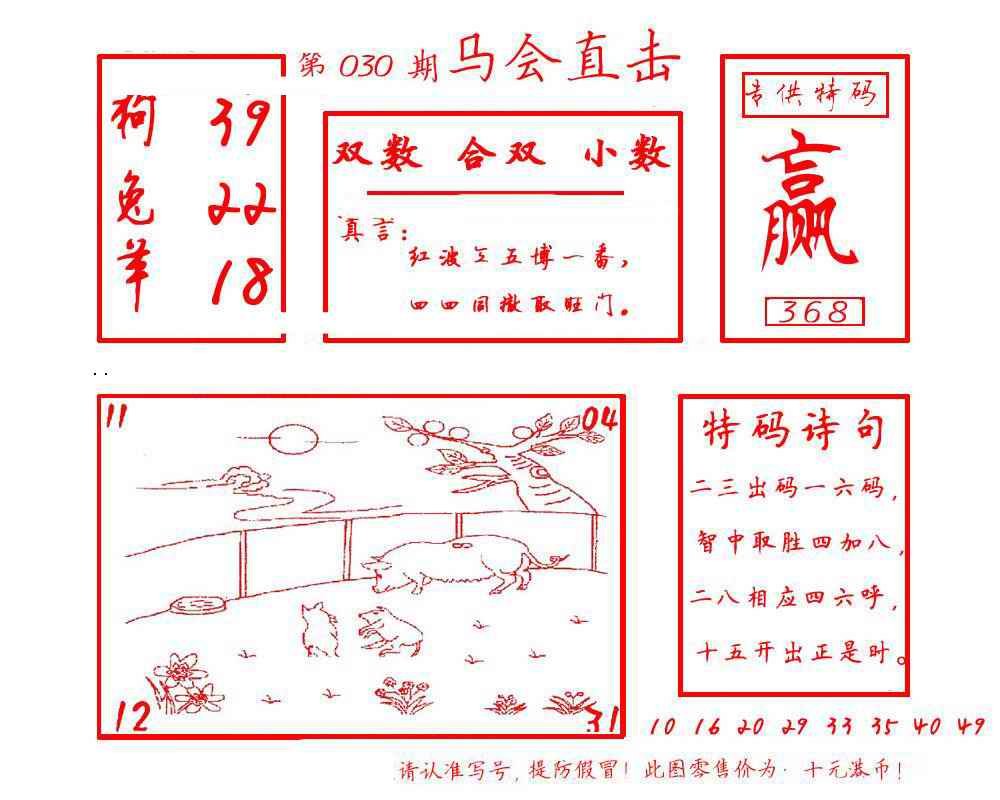 第 030 期 马会直击
狗 39
兔 22
羊 18
双数 合双 小数
真言：
红波 五博一番，
四四同撤取旺门。
专供特码
赢
368
11
04
12
31
特码诗句
二三出码一六码，
智中取胜四加八，
二八相应四六呼，
十五开出正是时。
10 16 20 29 33 35 40 49
请认准写号，提防假冒！此图零售价为·十元港币！